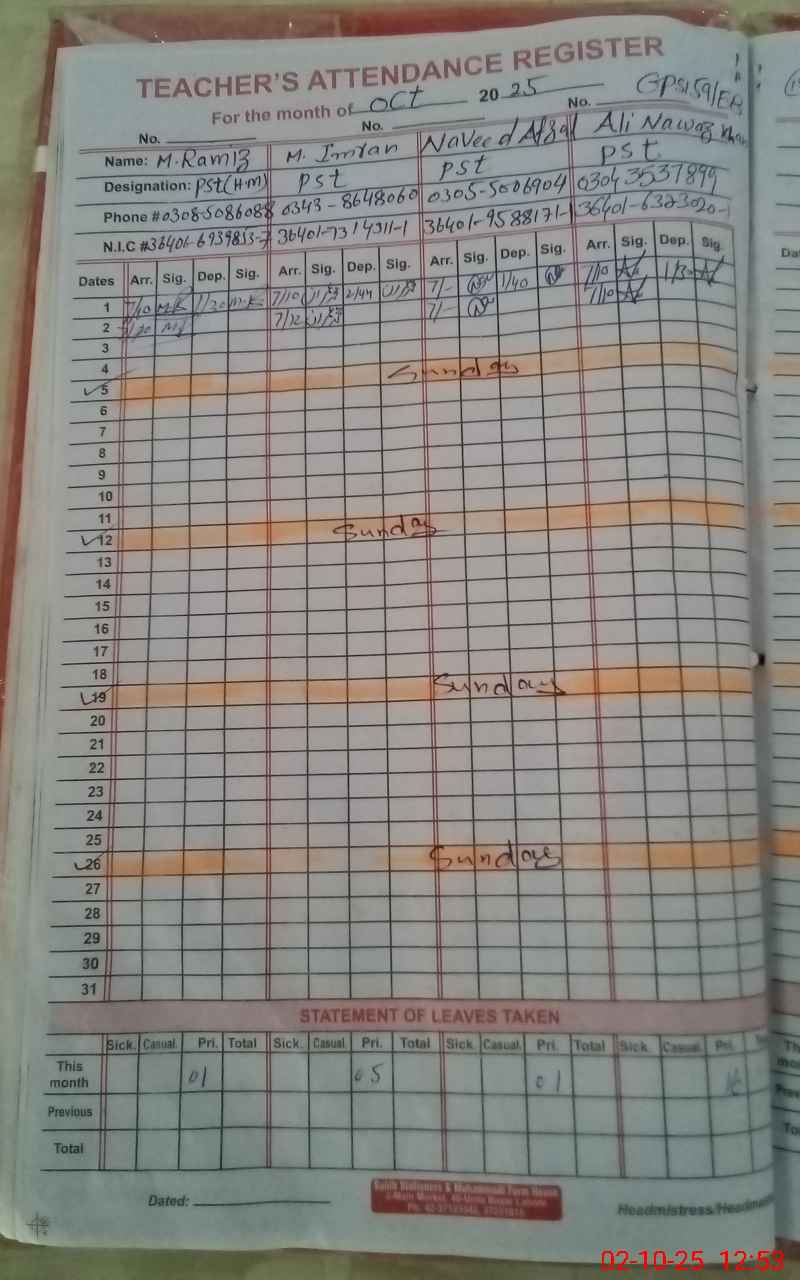 TEACHER'S ATTENDANCE REGISTER
For the month of Oct 2025
No. No. No. GPS 159/EB
Name: M.Ramiz M. Imran Naveed Afzal Ali Nawaz Khan
Designation: PST(H.M) PST PST PST
Phone # 0308-5086088 0343-8648060 0305-5006904 03043537899
N.I.C # 36401-6939853-7 36401-7314911-1 36401-9588171-1 36401-6323020-1
Dates Arr. Sig. Dep. Sig. Arr. Sig. Dep. Sig. Arr. Sig. Dep. Sig. Arr. Sig. Dep. Sig.
1 7/10 M.R 1/30 M.R 7/10 2/44 7/- 1/40 7/10 1/30
2 7/12 7/- 7/10
3
4
5 Sunday
6
7
8
9
10
11
12 Sunday
13
14
15
16
17
18
19 Sunday
20
21
22
23
24
25
26 Sunday
27
28
29
30
31
STATEMENT OF LEAVES TAKEN
Sick. Casual. Pri. Total Sick. Casual. Pri. Total Sick. Casual. Pri. Total Sick. Casual. Pri.
This month 01 05 01
Previous
Total
Dated:
Headmistress/Headma
02-10-25 12:53